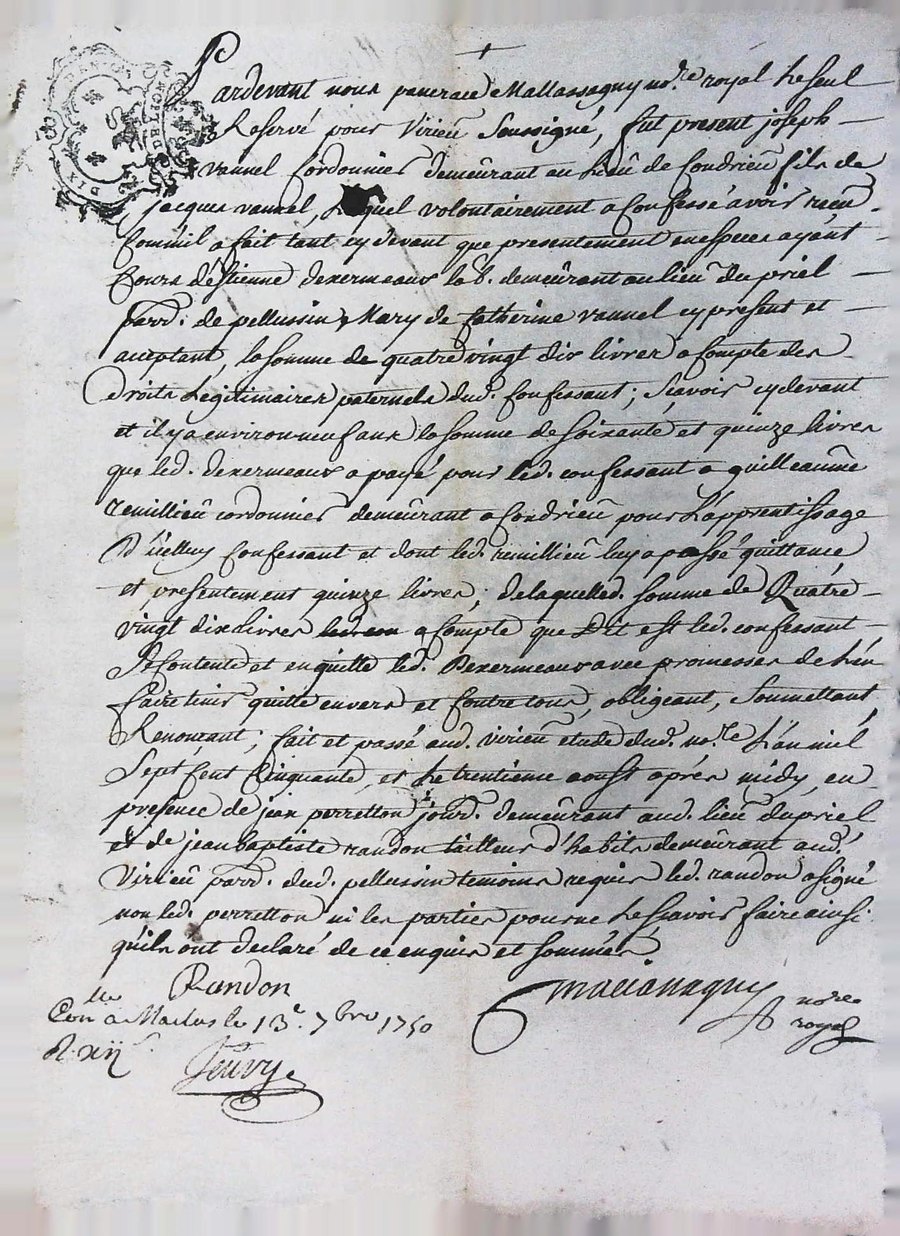 Pardevant nous panerace Mallassagny no.re royal le seul
Reservé pour Virieu Soussigné, fut present joseph
vannel Cordonnier demeurant au Lieu de Condrieu fils de
jacques vannel, Lequel volontairement a Confessé avoir receu
Comm'il a fait tant cy devant que presentement en espece ayant
Cours d'Estienne dexermeaux lab. demeurant au lieu du priel
parr. de pellussin, Mary de Catherine vannel cy present et
acceptant, la somme de quatre vingt dix livres a compte des
Droits Legitimaires paternels dud. Confessant; Scavoir cy devant
et il y a environ neuf ans la somme de soixante et quinze livres
que led. dexermeaux a payé pour led. confessant a guilleaume
remillieu cordonnier demeurant a Condrieu pour L'apprentissage
d'icelluy Confessant et dont led. remillieu luy a passé quittance
et presentement quinze livres; de laquelled. somme de Quatre
vingt dix livres a compte que Dit est led. confessant
Se contente et en quitte led. Dexermeaux avec promesses de L'en
faire tenir quitte envers et Contre tous, obligeant, Soumettant,
Renoncant; fait et passé aud. virieu etude dud. no.re L'an mil
Sept Cent Cinquante, et Le trentieme aoust aprés midy, en
presence de jean perretton jour. demeurant aud. lieu du priel
et de jean baptiste randon tailleur d'habits demeurant aud.
Virieu parr. dud. pellussin temoins requis led. randon a signé
non led. perretton ni les parties pour ne Le scavoir faire ainsi
qu'ils ont declaré de ce enquis et sommés
Randon
Mallassagny
no.re
royal
Con.lle a Maclas le 13.e 7bre 1750
R. xij s.